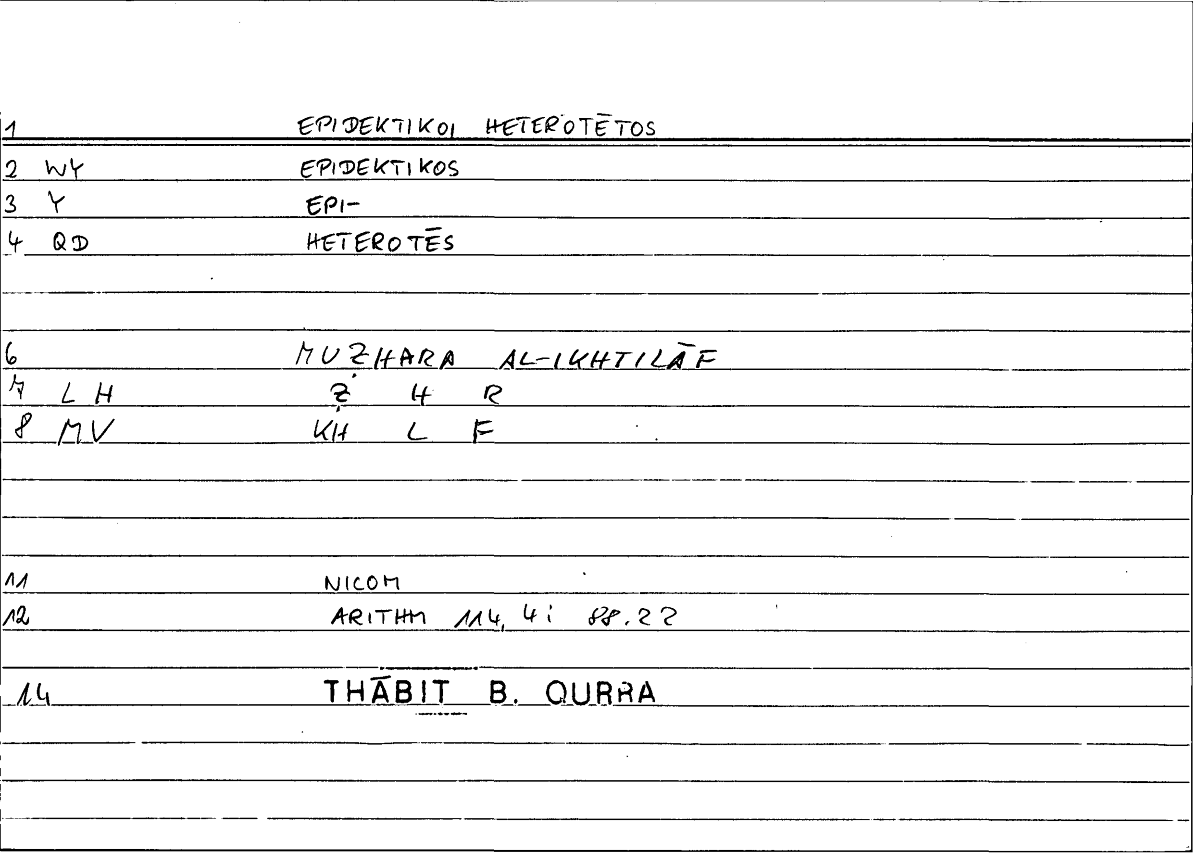 1 EPIDEKTIKOI HETEROTĒTOS
2 WY EPIDEKTIKOS
3 Y EPI-
4 QD HETEROTĒS
6 MUẒHARA AL-IKHTILĀF
7 LH Ẓ H R
8 MV KH L F
11 NICOM
12 ARITHM 114, 4; 88.22
14 THĀBIT B. QURRA